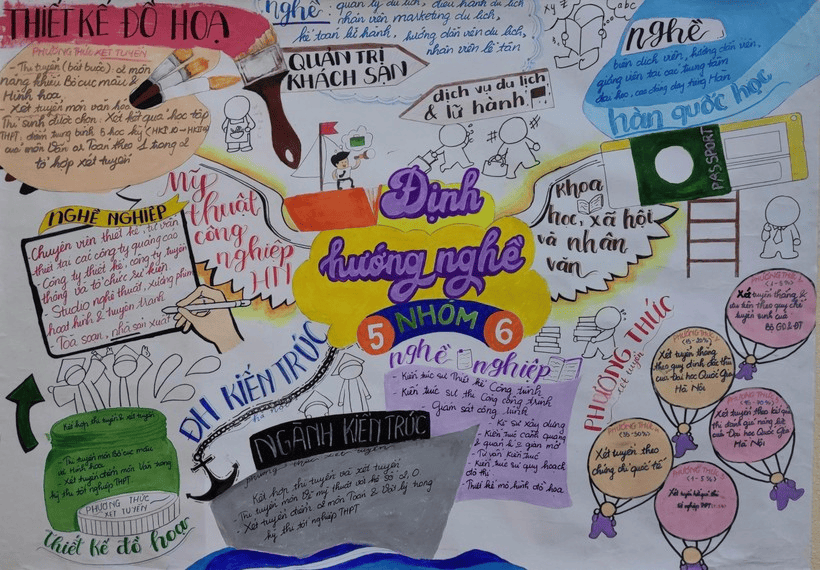 THIẾT KẾ ĐỒ HOẠ
PHƯƠNG THỨC XÉT TUYỂN
- Thi tuyển (bắt buộc) 2 môn
năng khiếu Bố cục màu &
Hình hoạ
Xét tuyển môn văn hoá
Thí sinh được chọn: Xét kết quả học tập
THPT, điểm trung bình 5 học kỳ (HKI 10 - HKI 12)
của môn Văn or Toán theo 1 trong 2
tổ hợp xét tuyển
nghề
quản lý du lịch, điều hành du lịch
nhân viên marketing du lịch,
kế toán lữ hành, hướng dẫn viên du lịch,
nhân viên lễ tân
QUẢN TRỊ
KHÁCH SẠN
dịch vụ du lịch
& lữ hành
nghề
biên dịch viên, hướng dẫn viên,
giảng viên tại các trung tâm
đại học, cao đẳng dạy tiếng Hàn
hàn quốc học
PASSPORT
NGHỀ NGHIỆP
Chuyên viên thiết kế, tư vấn
thiết tại các công ty quảng cáo
- Công ty thiết kế, công ty truyền
thông và tổ chức sự kiện
- Studio nghệ thuật, xưởng phim
hoạt hình & truyện tranh
- Toà soạn, nhà sản xuất
Mỹ
thuật
công
nghiệp
HN
Định
hướng nghề
5 NHÓM 6
khoa
học, xã hội
và nhân
văn
PHƯƠNG THỨC
xét tuyển
Xét tuyển thẳng &
ưu tiên theo quy chế
tuyển sinh của
Bộ GD&ĐT
Xét tuyển thẳng
theo quy định đặc thù
của Đại học Quốc Gia
Hà Nội
Xét tuyển theo kết quả
thi đánh giá năng lực
của Đại học Quốc Gia
Hà Nội
Xét tuyển theo
chứng chỉ quốc tế
ĐH KIẾN TRÚC
NGÀNH KIẾN TRÚC
Kết hợp thi tuyển và xét tuyển
- Thi tuyển môn Bố mỹ thuật với hệ số 2,0
- Xét tuyển điểm 2 môn Toán & Vật lý trong
kỳ thi tốt nghiệp THPT
nghề nghiệp
- Kiến trúc sư Thiết kế Công trình
- Kiến trúc sư thi Công công trình
- Giám sát công trình
- Kĩ sư xây dựng
- Kiến trúc cảnh quang
- Tư vấn kiến trúc
- Kiến trúc sư quy hoạch
đô thị
- Thiết kế mô hình đồ họa
Kết hợp thi tuyển & xét tuyển
- Thi tuyển môn Bố cục màu
& Hình họa
- Xét tuyển điểm môn Văn trong
kỳ thi tốt nghiệp THPT
PHƯƠNG THỨC
XÉT TUYỂN
Thiết kế đồ họa